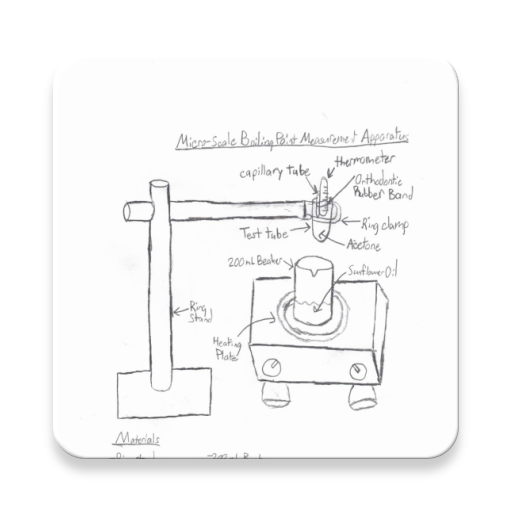 Micro-Scale Boiling Point Measurement Apparatus
thermometer
capillary tube
Orthodontic
Rubber Band
Ring clamp
Test tube
Acetone
200mL Beaker
Sunflower Oil
Ring
Stand
Heating
Plate
Materials